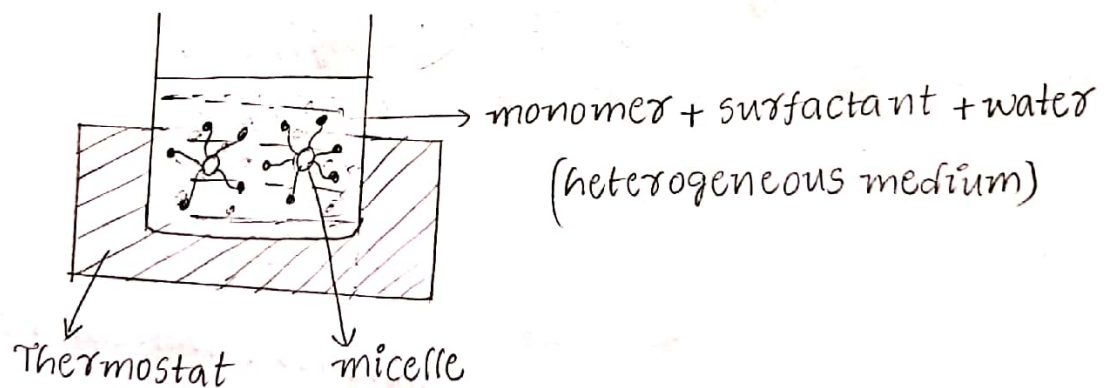 monomer + surfactant + water
(heterogeneous medium)
Thermostat
micelle